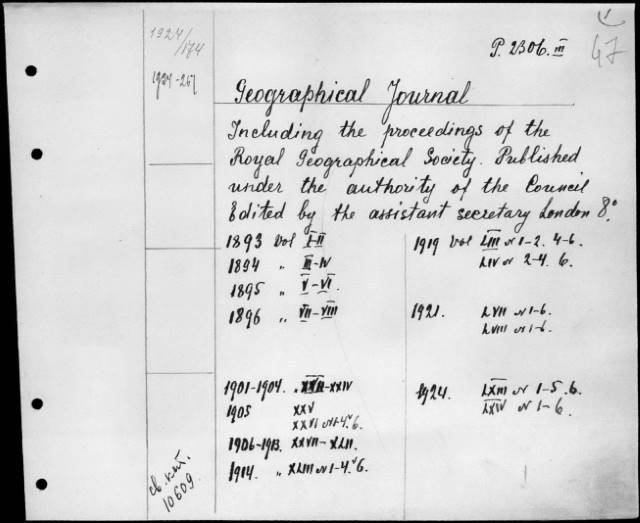 1924/174
1924-267
P. 2306. III
47
Geographical Journal
Including the proceedings of the
Royal Geographical Society. Published
under the authority of the Council
Edited by the assistant secretary London 8°
1893 Vol I-II
1894 „ III-IV
1895 „ V-VI.
1896 „ VII-VIII
1901-1904. XXIV
1905 XXV
XXVI N 1-4, 6.
1906-1913. XXVII-XLII.
1914. „ XLIII N 1-4, 6.
1919 Vol LIII N 1-2. 4-6.
LIV N 2-4. 6.
1921. LVII N 1-6.
LVIII N 1-6.
1924. LXIII N 1-5. 6.
LXIV N 1-6.
св. кат.
10609